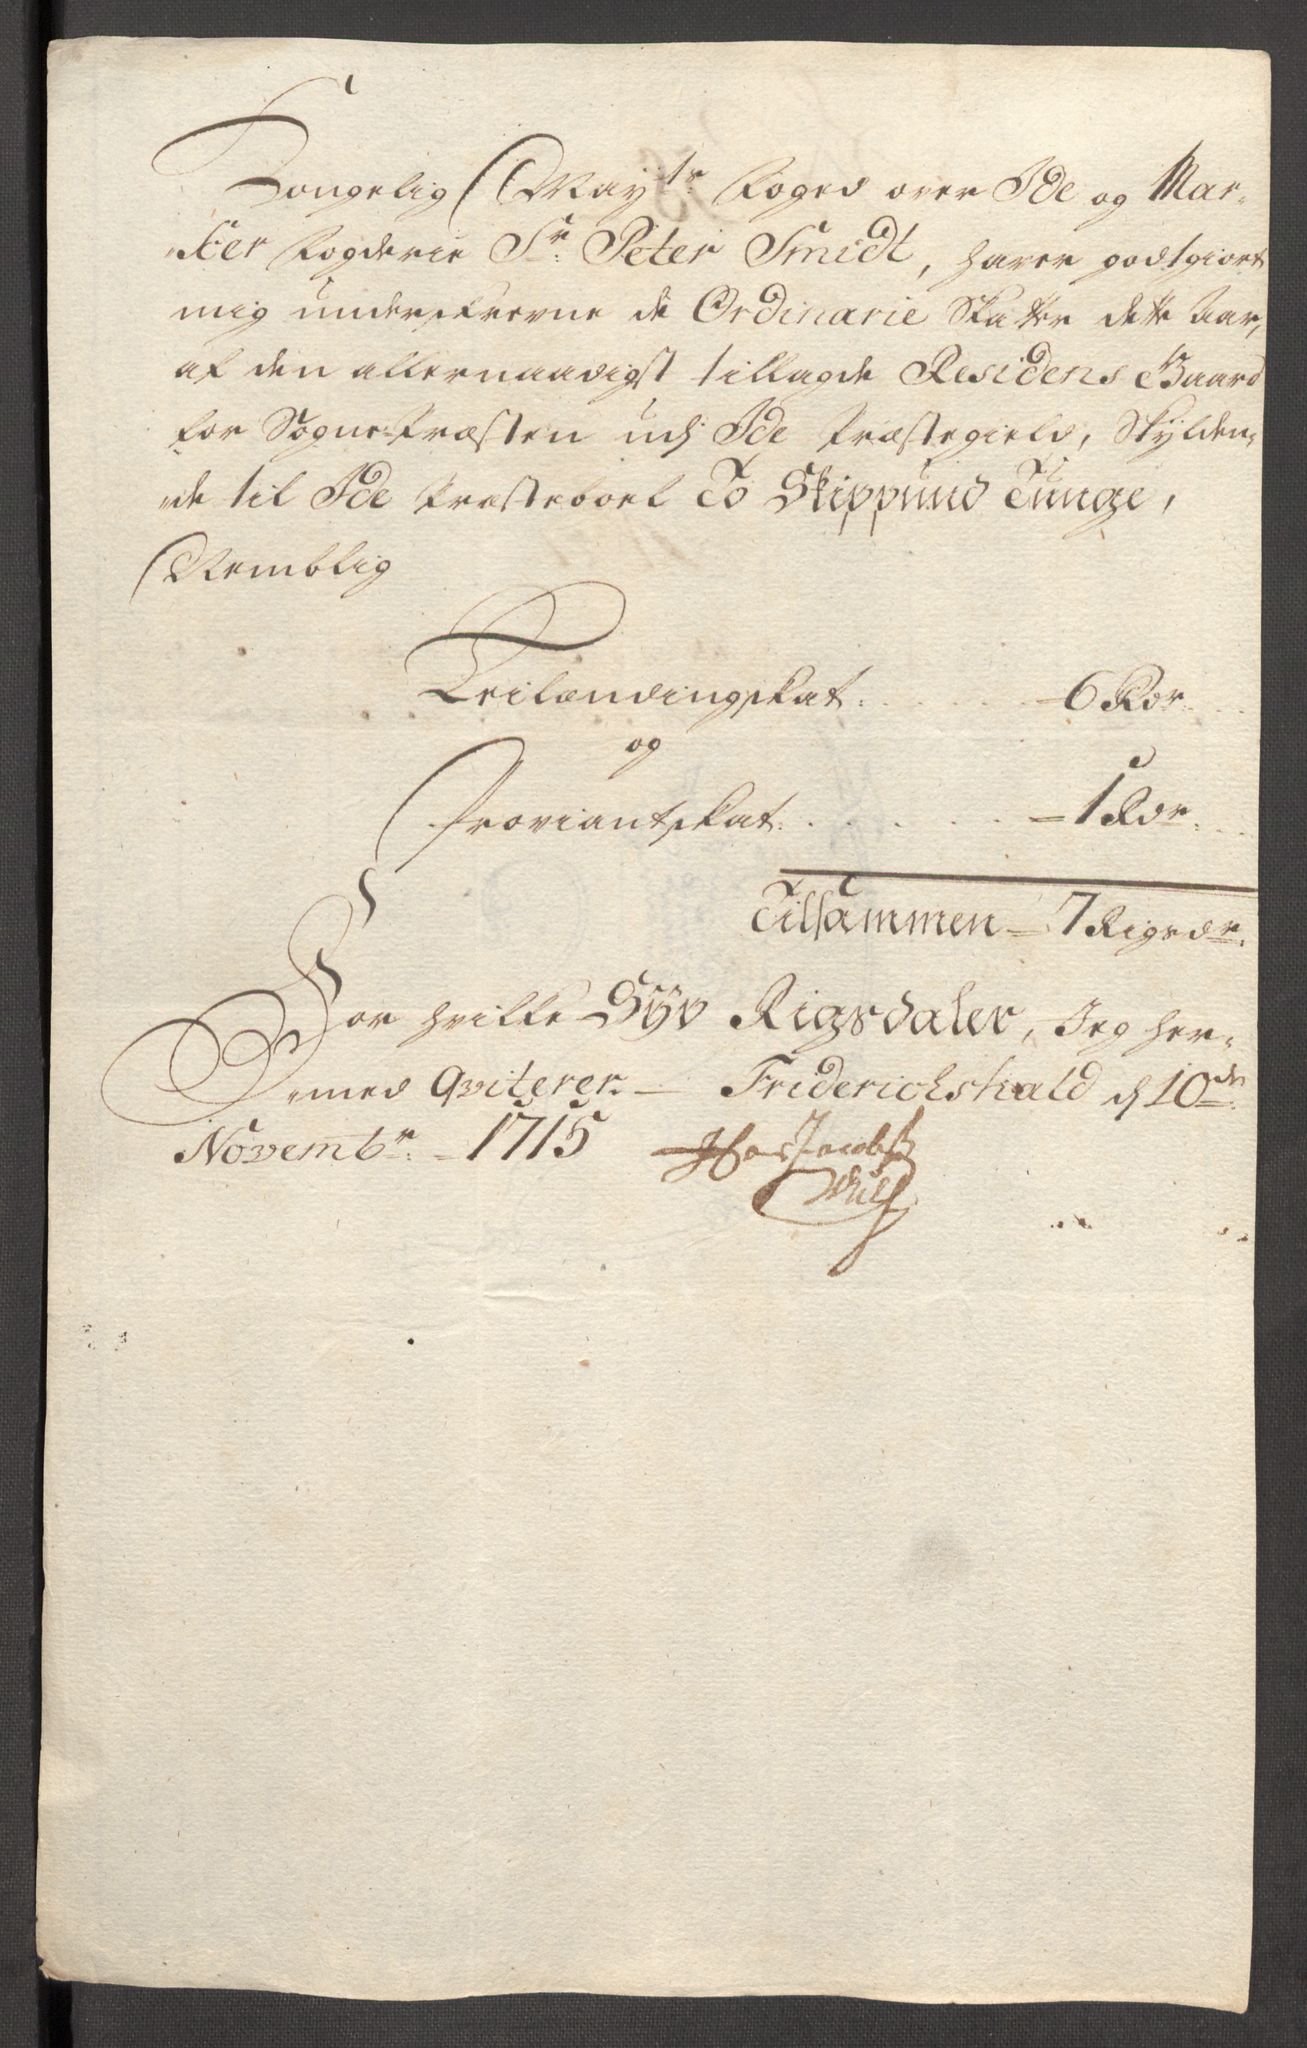 Kongelig Mayts. Foged over Ide og Mar-
ker Fogderie Sr. Peter Smidt, haver godtgiort
mig underskrevne de Ordinarie Skatter dette Aar,
af den allernaadigst tillagde Residens Gaard
for Sogne-Præsten udj Ide Præstegield, Skylden-
de til Ide Præsteboel To Skippund Tunge,
Nemblig
Leilændingskat. 6 Rdr.
og
Proviantskat. 1 Rdr.
Tilsammen 7 Rigsdr.
For hvilke Syv Rigsdaler, Jeg her-
med Qviterer. Friderichshald d 10de
Novembr. 1715
Jacobs
Wulf